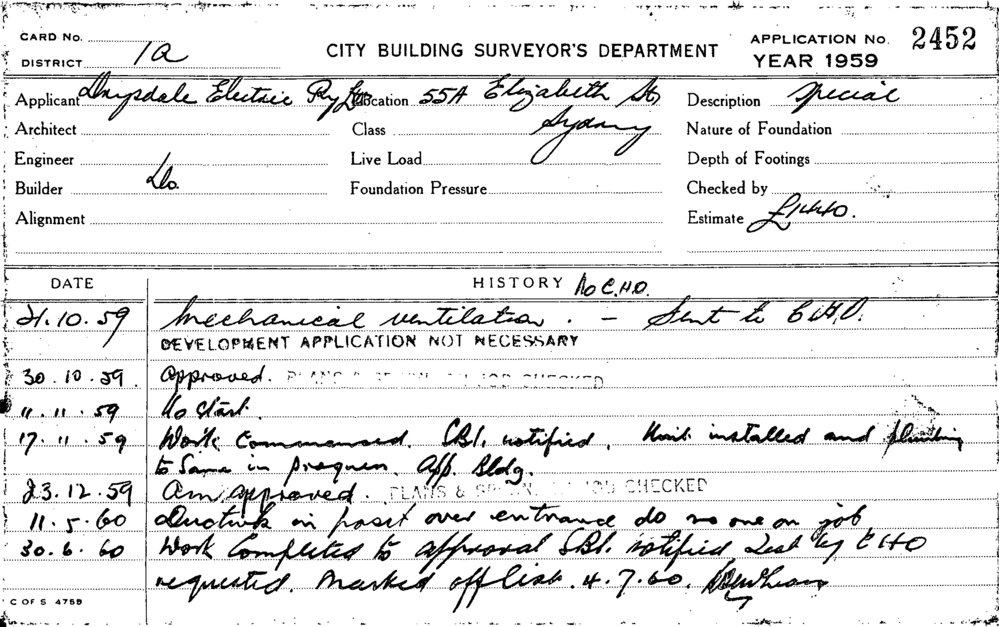 CARD No.
DISTRICT 1a
CITY BUILDING SURVEYOR'S DEPARTMENT
APPLICATION No. 2452
YEAR 1959
Applicant Drysdale Electric Pty Ltd
Location 55A Elizabeth St
Sydney
Description Special
Architect
Class
Nature of Foundation
Engineer
Live Load
Depth of Footings
Builder Do.
Foundation Pressure
Checked by
Alignment
Estimate £1440.
DATE
HISTORY No C.H.O.
21.10.59 Mechanical ventilation. - Sent to C.H.O.
DEVELOPMENT APPLICATION NOT NECESSARY
30.10.59. Approved. PLANS & CHECKED
11.11.59 No Start.
17.11.59 Work Commenced. notified. Unit installed and plumbing
to Same in progress. App. Bldg.
23.12.59 Am approved. PLANS & CHECKED
11.5.60 in posit over entrance do no one on job
30.6.60 Work Completed to approval notified Test by CHO
requested. Marked off list. 4.7.60.
C OF S 4759